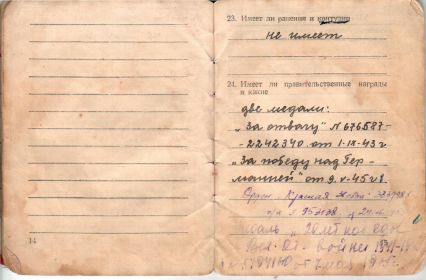 23. Имеет ли ранения и контузии
не имеет
24. Имеет ли правительственные награды
и какие
две медали:
„За отвагу" N676587-
-2242340 от 1-IX-43 г
„За победу над Гер-
манией" от 9.V-45 г.
Орден Красная
20 лет поб
Вел. От. войне 1941-
от 7 мая
14